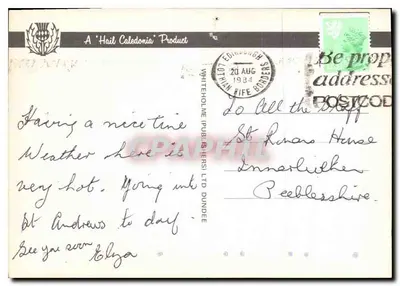 A "Hail Caledonia" Product
EDINBURGH
LOTHIAN FIFE BORDERS
20 AUG
1984
Be prop
addresse
POSTCOD
WHITEHOLME (PUBLISHERS) LTD DUNDEE
Having a nice time
Weather here is
very hot. Going into
St Andrews to day.
See you soon
Elyza
To All the Staff
St Ronans House
Innerleithen
Peeblesshire.
CPAPHIL